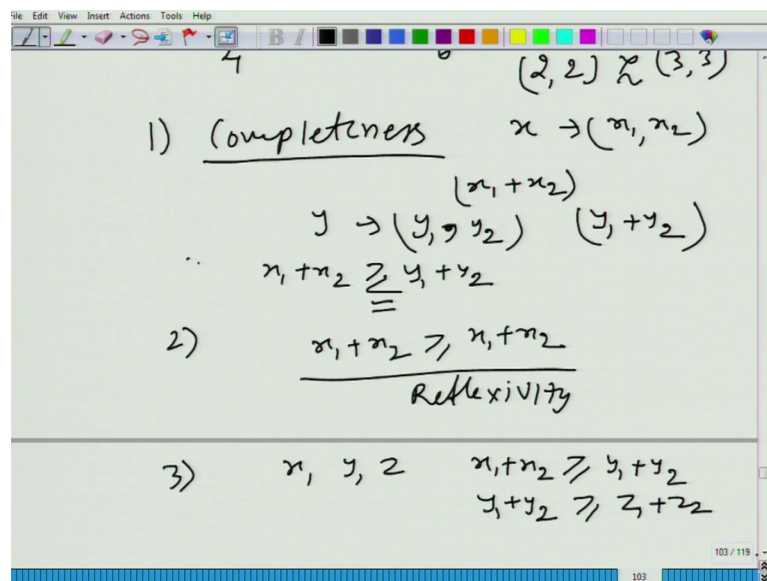 File Edit View Insert Actions Tools Help
B I
4 6 (2,2) ≿ (3,3)
1) Completeness x → (x₁, x₂)
(x₁ + x₂)
y → (y₁, y₂) (y₁ + y₂)
x₁ + x₂ ≥ y₁ + y₂
2) x₁ + x₂ ≥ x₁ + x₂
Reflexivity
3) x, y, z x₁ + x₂ ≥ y₁ + y₂
y₁ + y₂ ≥ z₁ + z₂
103 / 119
103